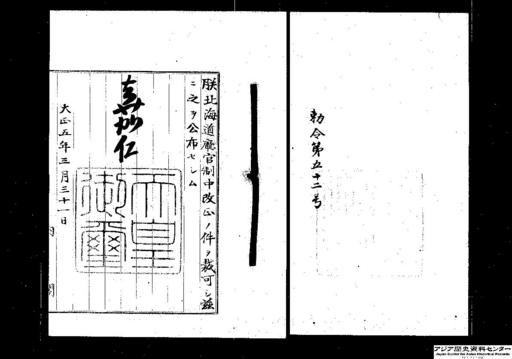 勅令第五十二号
朕北海道廳官制中改正ノ件ヲ裁可シ玆
ニ之ヲ公布セシム
嘉仁
天皇
御璽
大正五年三月三十一日
内閣
アジア歴史資料センター
Japan Center for Asian Historical Records